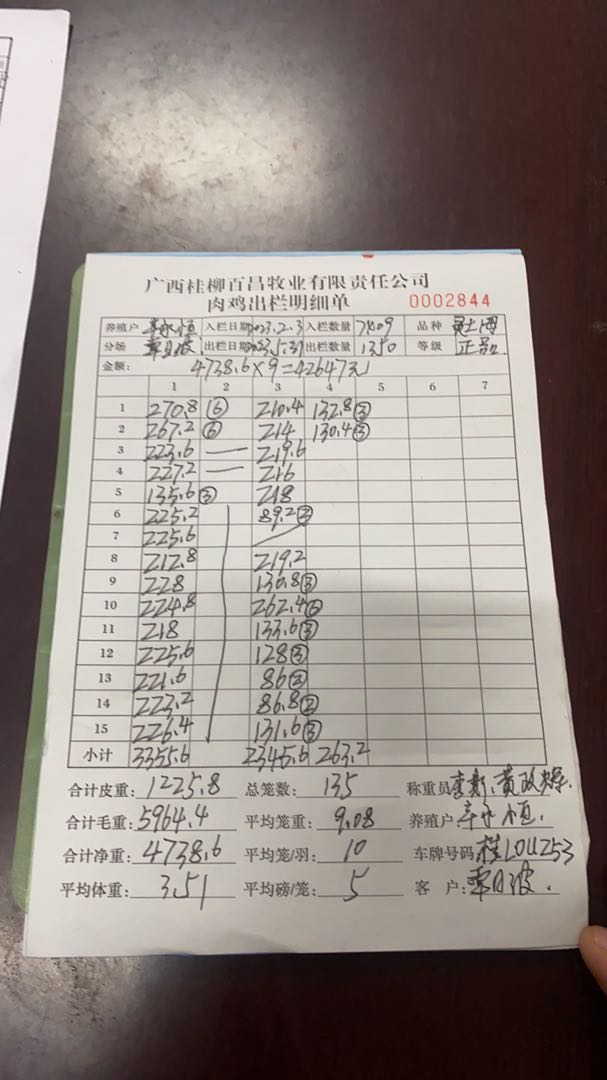 广西桂柳百昌牧业有限责任公司
肉鸡出栏明细单 0002844
养殖户 永恒 入栏日期 2023.2.3 入栏数量 7809 品种
分场 覃日波 出栏日期 2023.5.31 出栏数量 1350 等级 正品
金额: 4738.6×9=42647元
1 2 3 4 5 6 7
1 270.8 ⑥ 210.4 132.8③
2 267.2 ⑥ 214 130.4③
3 223.6 219.6
4 227.2 216
5 135.6③ 218
6 225.2 89.2②
7 225.6
8 212.8 219.2
9 228 130.8③
10 224.8 262.4⑥
11 218 133.6③
12 225.6 128③
13 221.6 86②
14 223.2 86.8②
15 226.4 131.6③
小计 3355.6 2345.6 263.2
合计皮重: 1225.8 总笼数: 135 称重员
合计毛重: 5964.4 平均笼重: 9.08 养殖户: 永恒.
合计净重: 4738.6 平均笼/羽: 10 车牌号码 桂L0U253
平均体重: 3.51 平均磅/笼: 5 客 户: 覃日波.